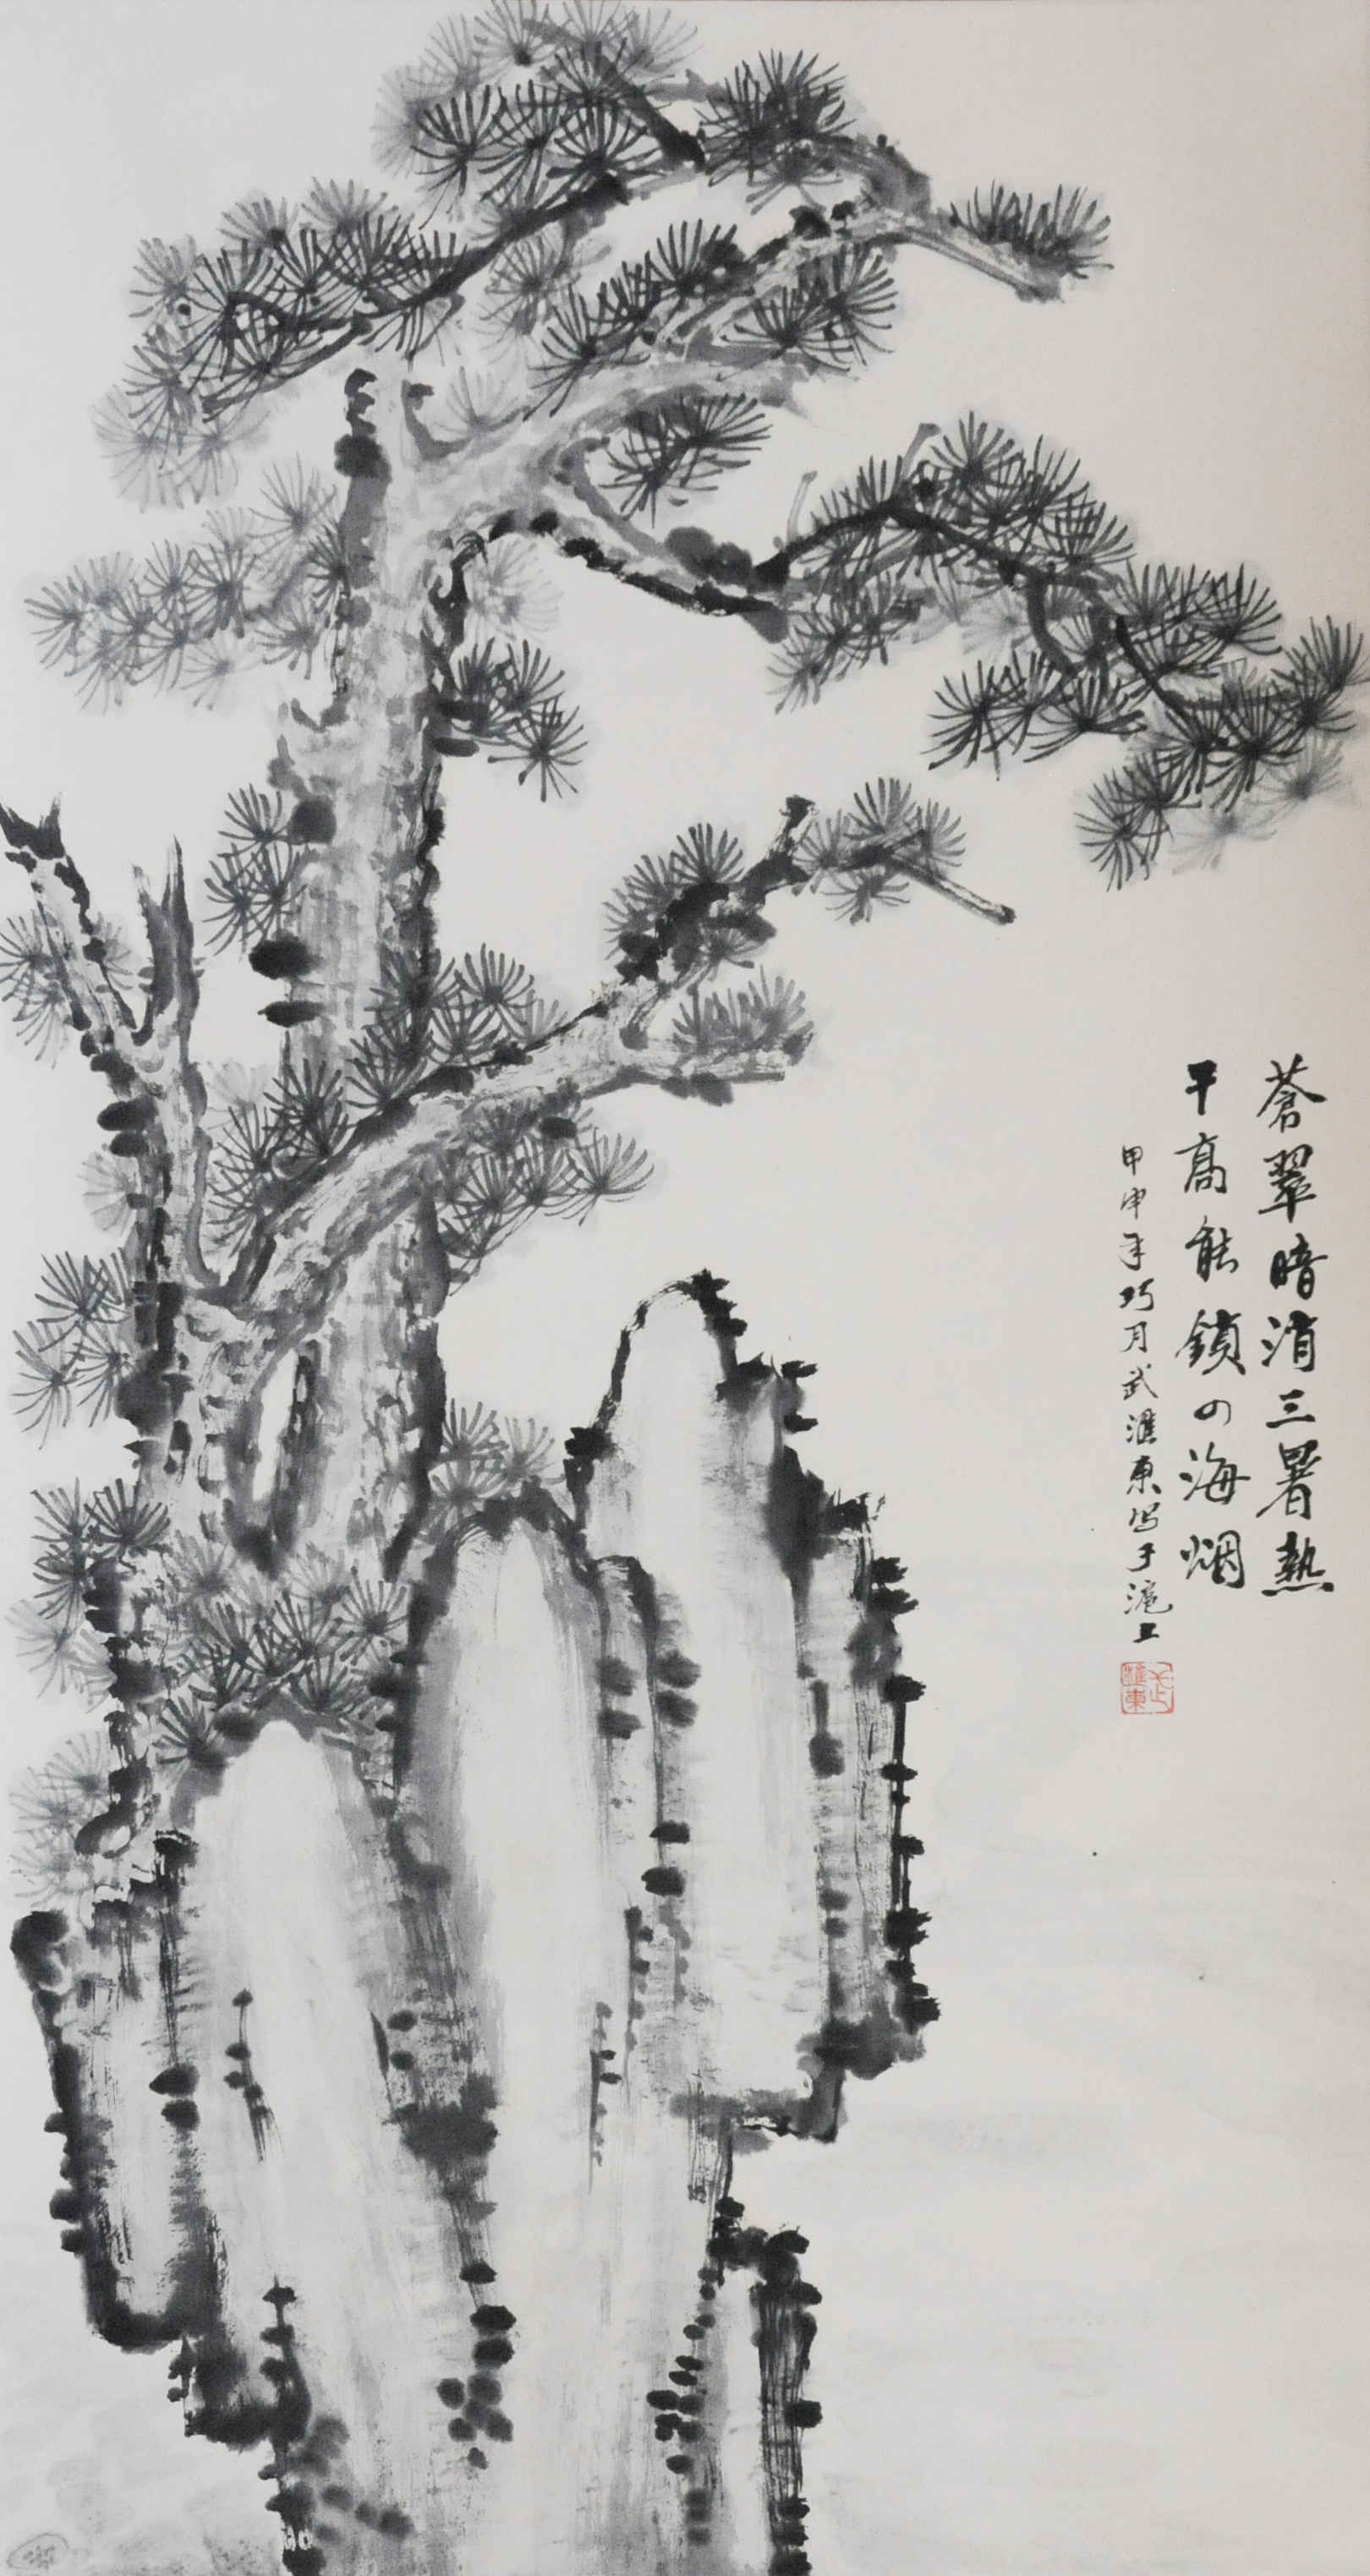 蒼翠暗消三暑熱
干高能鎖四海烟
甲申年巧月武滙東写于滬上
武滙東